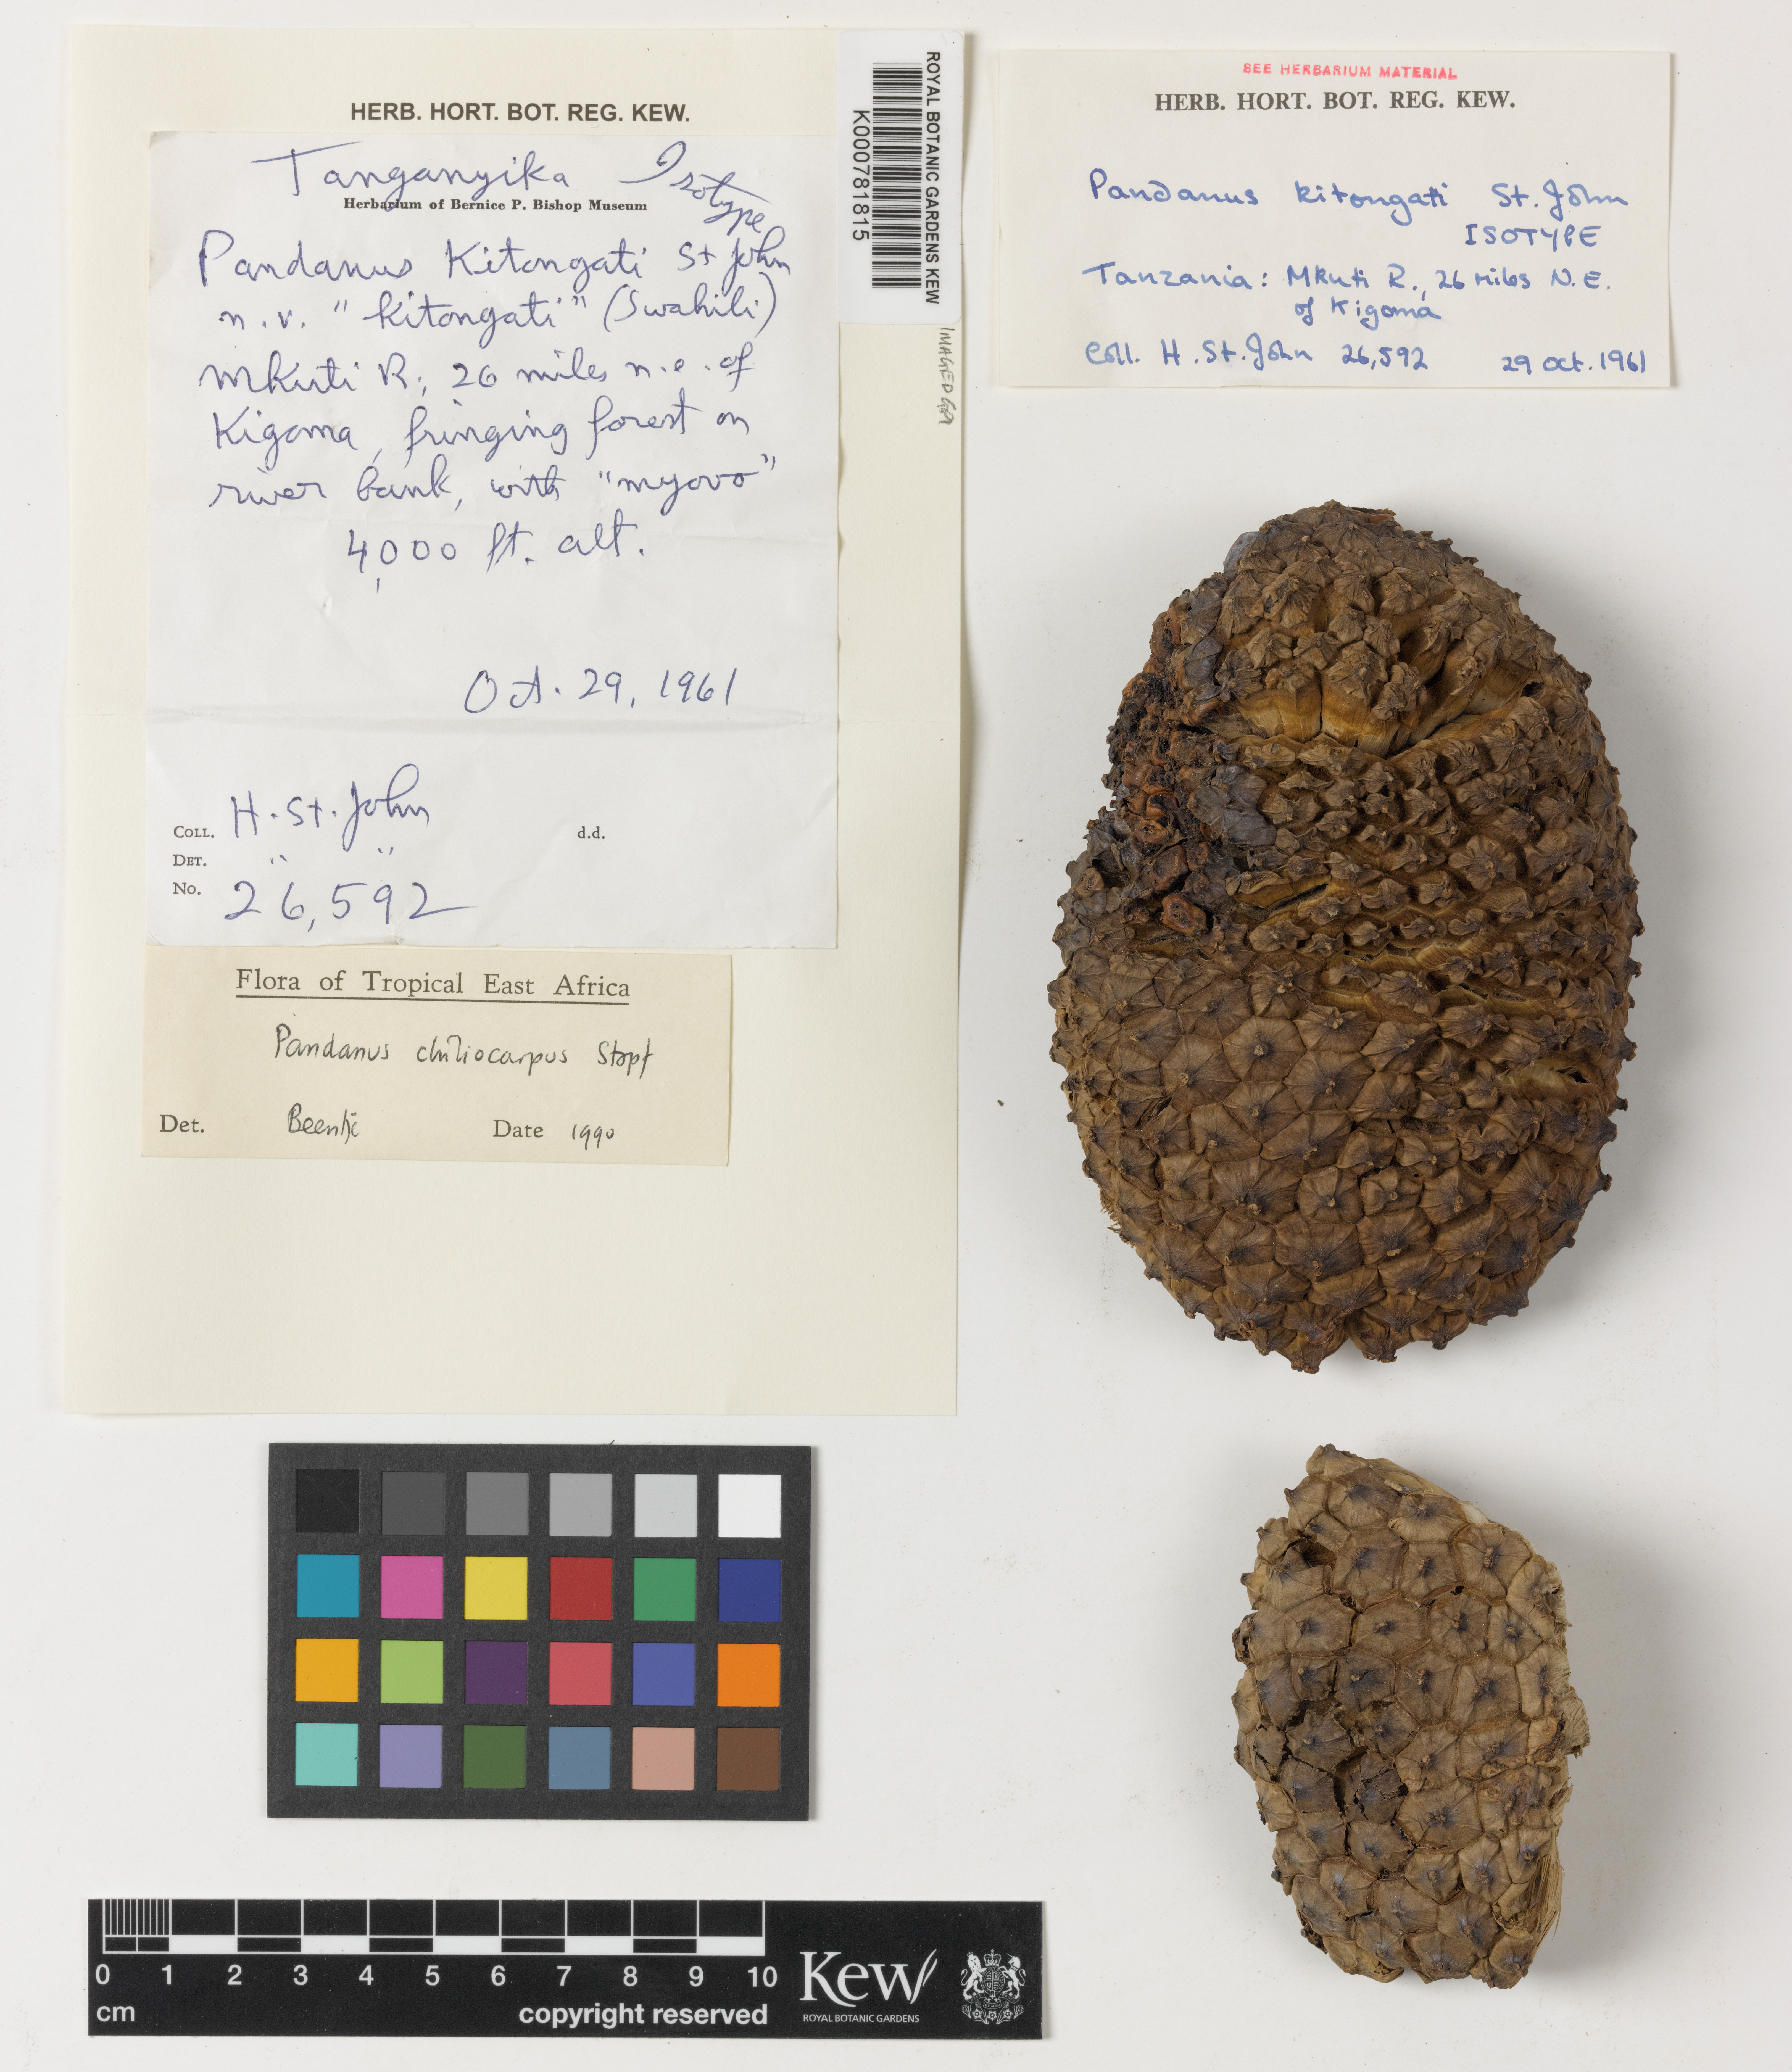 HERB. HORT. BOT. REG. KEW.
Tanganyika Isotype
Herbarium of Bernice P. Bishop Museum
Pandanus Kitongati St John
n.v. "kitongati" (Swahili)
Mkuti R., 26 miles n.e. of
Kigoma, fringing forest on
river bank, with "myovo"
4,000 ft. alt.
Oct. 29, 1961
COLL. H. St. John d.d.
DET. " "
No. 26,592
Flora of Tropical East Africa
Pandanus chiliocarpus Stapf
Det. Beentje Date 1990
ROYAL BOTANIC GARDENS KEW
K000781815
IMAGED
SEE HERBARIUM MATERIAL
HERB. HORT. BOT. REG. KEW.
Pandanus kitongati St. John
ISOTYPE
Tanzania: Mkuti R., 26 miles N.E.
of Kigoma
Coll. H. St. John 26,592 29 Oct. 1961
0 1 2 3 4 5 6 7 8 9 10
cm
copyright reserved
Kew
ROYAL BOTANIC GARDENS